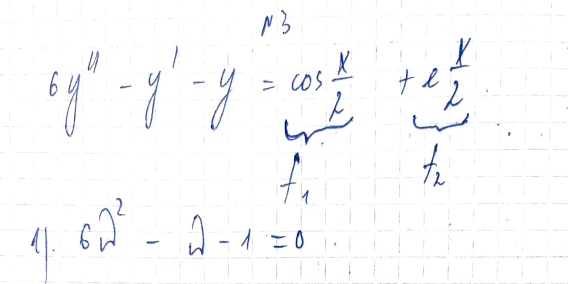 N3
6y'' - y' - y = cos x/2 + e^(x/2)
f₁ f₂
1). 6λ² - λ - 1 = 0